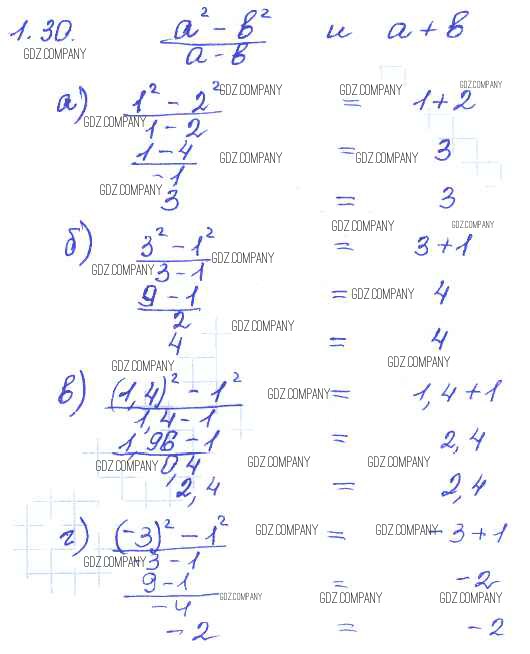 1.30. (a² - b²)/(a - b) и a + b
GDZ.COMPANY
а) (1² - 2²)/(1 - 2) = 1 + 2
GDZ.COMPANY GDZ.COMPANY GDZ.COMPANY GDZ.COMPANY
(1 - 4)/(-1) = 3
GDZ.COMPANY GDZ.COMPANY
GDZ.COMPANY
3 = 3
GDZ.COMPANY GDZ.COMPANY
б) (3² - 1²)/(3 - 1) = 3 + 1
GDZ.COMPANY GDZ.COMPANY
(9 - 1)/2 = 4
GDZ.COMPANY
GDZ.COMPANY
4 = 4
GDZ.COMPANY GDZ.COMPANY
в) ((1,4)² - 1²)/(1,4 - 1) = 1,4 + 1
GDZ.COMPANY
(1,96 - 1)/0,4 = 2,4
GDZ.COMPANY GDZ.COMPANY GDZ.COMPANY
2,4 = 2,4
г) ((-3)² - 1²)/(-3 - 1) = -3 + 1
GDZ.COMPANY GDZ.COMPANY GDZ.COMPANY
(9 - 1)/(-4) = -2
GDZ.COMPANY GDZ.COMPANY GDZ.COMPANY
-2 = -2